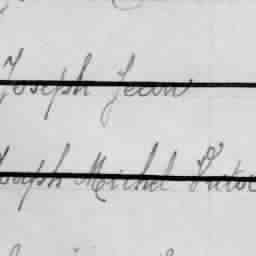 Joseph Jean
Joseph Michel Victor